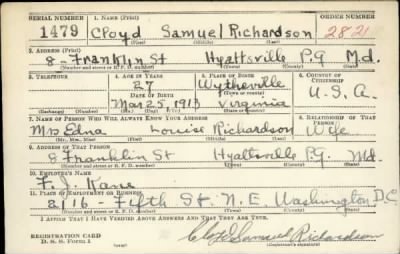 SERIAL NUMBER 1. NAME (Print) ORDER NUMBER
1479 Cloyd Samuel Richardson 2821
(First) (Middle) (Last)
2. ADDRESS (Print)
8 - Franklin St Hyattsville P.G. Md.
(Number and street or R. F. D. number) (Town) (County) (State)
3. TELEPHONE 4. AGE IN YEARS 5. PLACE OF BIRTH 6. COUNTRY OF CITIZENSHIP
27 Wytheville
DATE OF BIRTH (Town or county) U.S.A.
Mar 25, 1913 Virginia
(Exchange) (Number) (Mo.) (Day) (Yr.) (State or country)
7. NAME OF PERSON WHO WILL ALWAYS KNOW YOUR ADDRESS 8. RELATIONSHIP OF THAT PERSON
Mrs Edna Louise Richardson Wife
(Mr., Mrs., Miss) (First) (Middle) (Last)
9. ADDRESS OF THAT PERSON
8 Franklin St Hyattsville P.G. Md.
(Number and street or R. F. D. number) (Town) (County) (State)
10. EMPLOYER'S NAME
F. J. Kane
11. PLACE OF EMPLOYMENT OR BUSINESS
2116 - Fifth St. N.E. Washington D.C.
(Number and street or R. F. D. number) (Town) (County) (State)
I AFFIRM THAT I HAVE VERIFIED ABOVE ANSWERS AND THAT THEY ARE TRUE.
REGISTRATION CARD
D. S. S. Form 1 Cloyd Samuel Richardson
(Registrant's signature)